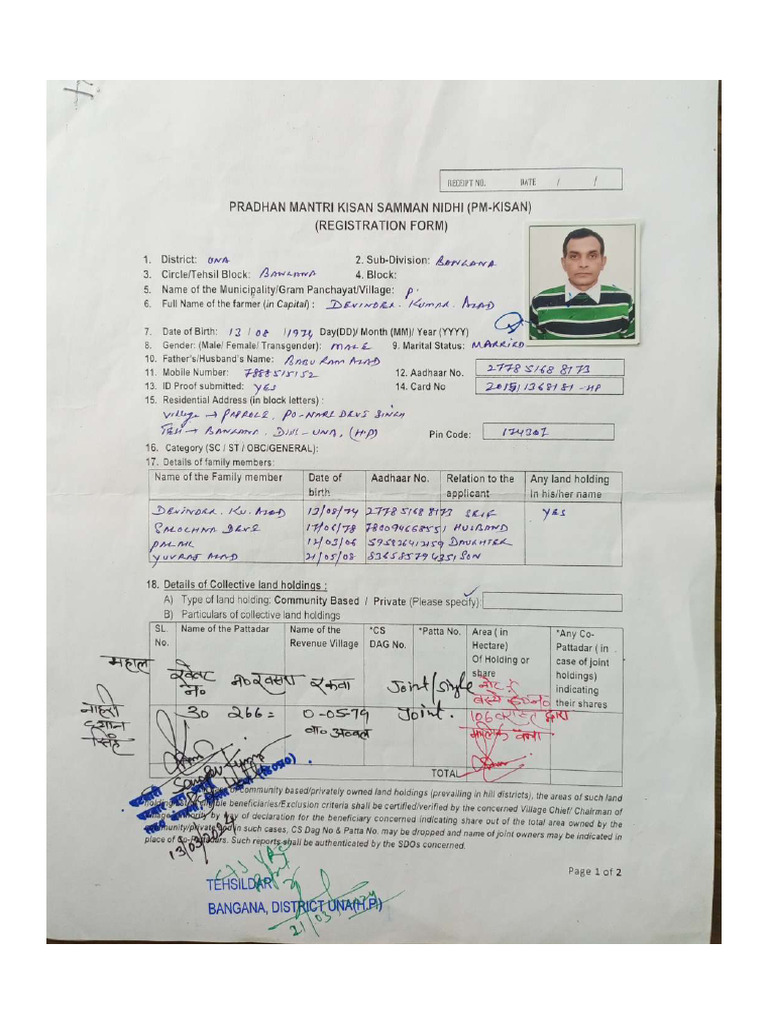 RECEIPT NO. DATE / /
PRADHAN MANTRI KISAN SAMMAN NIDHI (PM-KISAN)
(REGISTRATION FORM)
1. District: UNA 2. Sub-Division: BANGANA
3. Circle/Tehsil Block: BANGANA 4. Block:
5. Name of the Municipality/Gram Panchayat/Village: P.
6. Full Name of the farmer (in Capital) : DEVINDER KUMAR AZAD
7. Date of Birth: 13 / 08 / 1974 Day(DD)/ Month (MM)/ Year (YYYY)
8. Gender: (Male/ Female/ Transgender): MALE 9. Marital Status: MARRIED
10. Father's/Husband's Name: BABU RAM AZAD
11. Mobile Number: 7888515152 12. Aadhaar No. 2778 5168 8173
13. ID Proof submitted: YES 14. Card No 201511368181-HP
15. Residential Address (in block letters) :
Village → PAPROLE, PO-NARI DEVI SINGH
TEH → BANGANA, DIST-UNA, (H.P) Pin Code: 174307
16. Category (SC / ST / OBC/GENERAL):
17. Details of family members:
Name of the Family member Date of birth Aadhaar No. Relation to the applicant Any land holding In his/her name
DEVINDER KU. AZAD 13/08/74 277851688173 SELF YES
SALOCHNA DEVI 17/06/78 780094668551 HUSBAND
PALAK 12/03/06 595826412159 DAUGHTER
YUVRAJ AZAD 21/05/08 836585794351 SON
18. Details of Collective land holdings :
A) Type of land holding: Community Based / Private (Please specify):
B) Particulars of collective land holdings
SL. No. Name of the Pattadar Name of the Revenue Village *CS DAG No. *Patta No. Area ( in Hectare) Of Holding or share *Any Co-Pattadar ( in case of joint holdings) indicating their shares
महाल खेवट नं० न० खसरा रकवा Joint/Single
30 266 = 0-05-79 Joint.
TOTAL
of community based/privately owned land holdings (prevailing in hill districts), the areas of such land
holding of eligible beneficiaries/Exclusion criteria shall be certified/verified by the concerned Village Chief/ Chairman of
authority by way of declaration for the beneficiary concerned indicating share out of the total area owned by the
community/private and in such cases, CS Dag No & Patta No. may be dropped and name of joint owners may be indicated in
place of Co-Pattadars. Such reports shall be authenticated by the SDOs concerned.
13/03/2024
Page 1 of 2
TEHSILDAR
BANGANA, DISTRICT UNA(H.P.)
21/03/2024